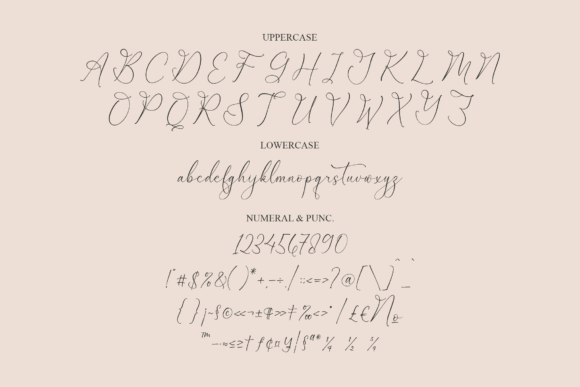 UPPERCASE
A B C D E F G H I J K L M N
O P Q R S T U V W X Y Z
LOWERCASE
abcdefghijklmnopqrstuvwxyz
NUMERAL & PUNC.
1234567890
!"#$%&()*+,-./:;<=>?@[\]^_`
{}¡~§©«¬±¶»‡‰‹›°/£€№
™-≈≤≥†ƒ¢¤¥|§ªº¼ ½ ¾